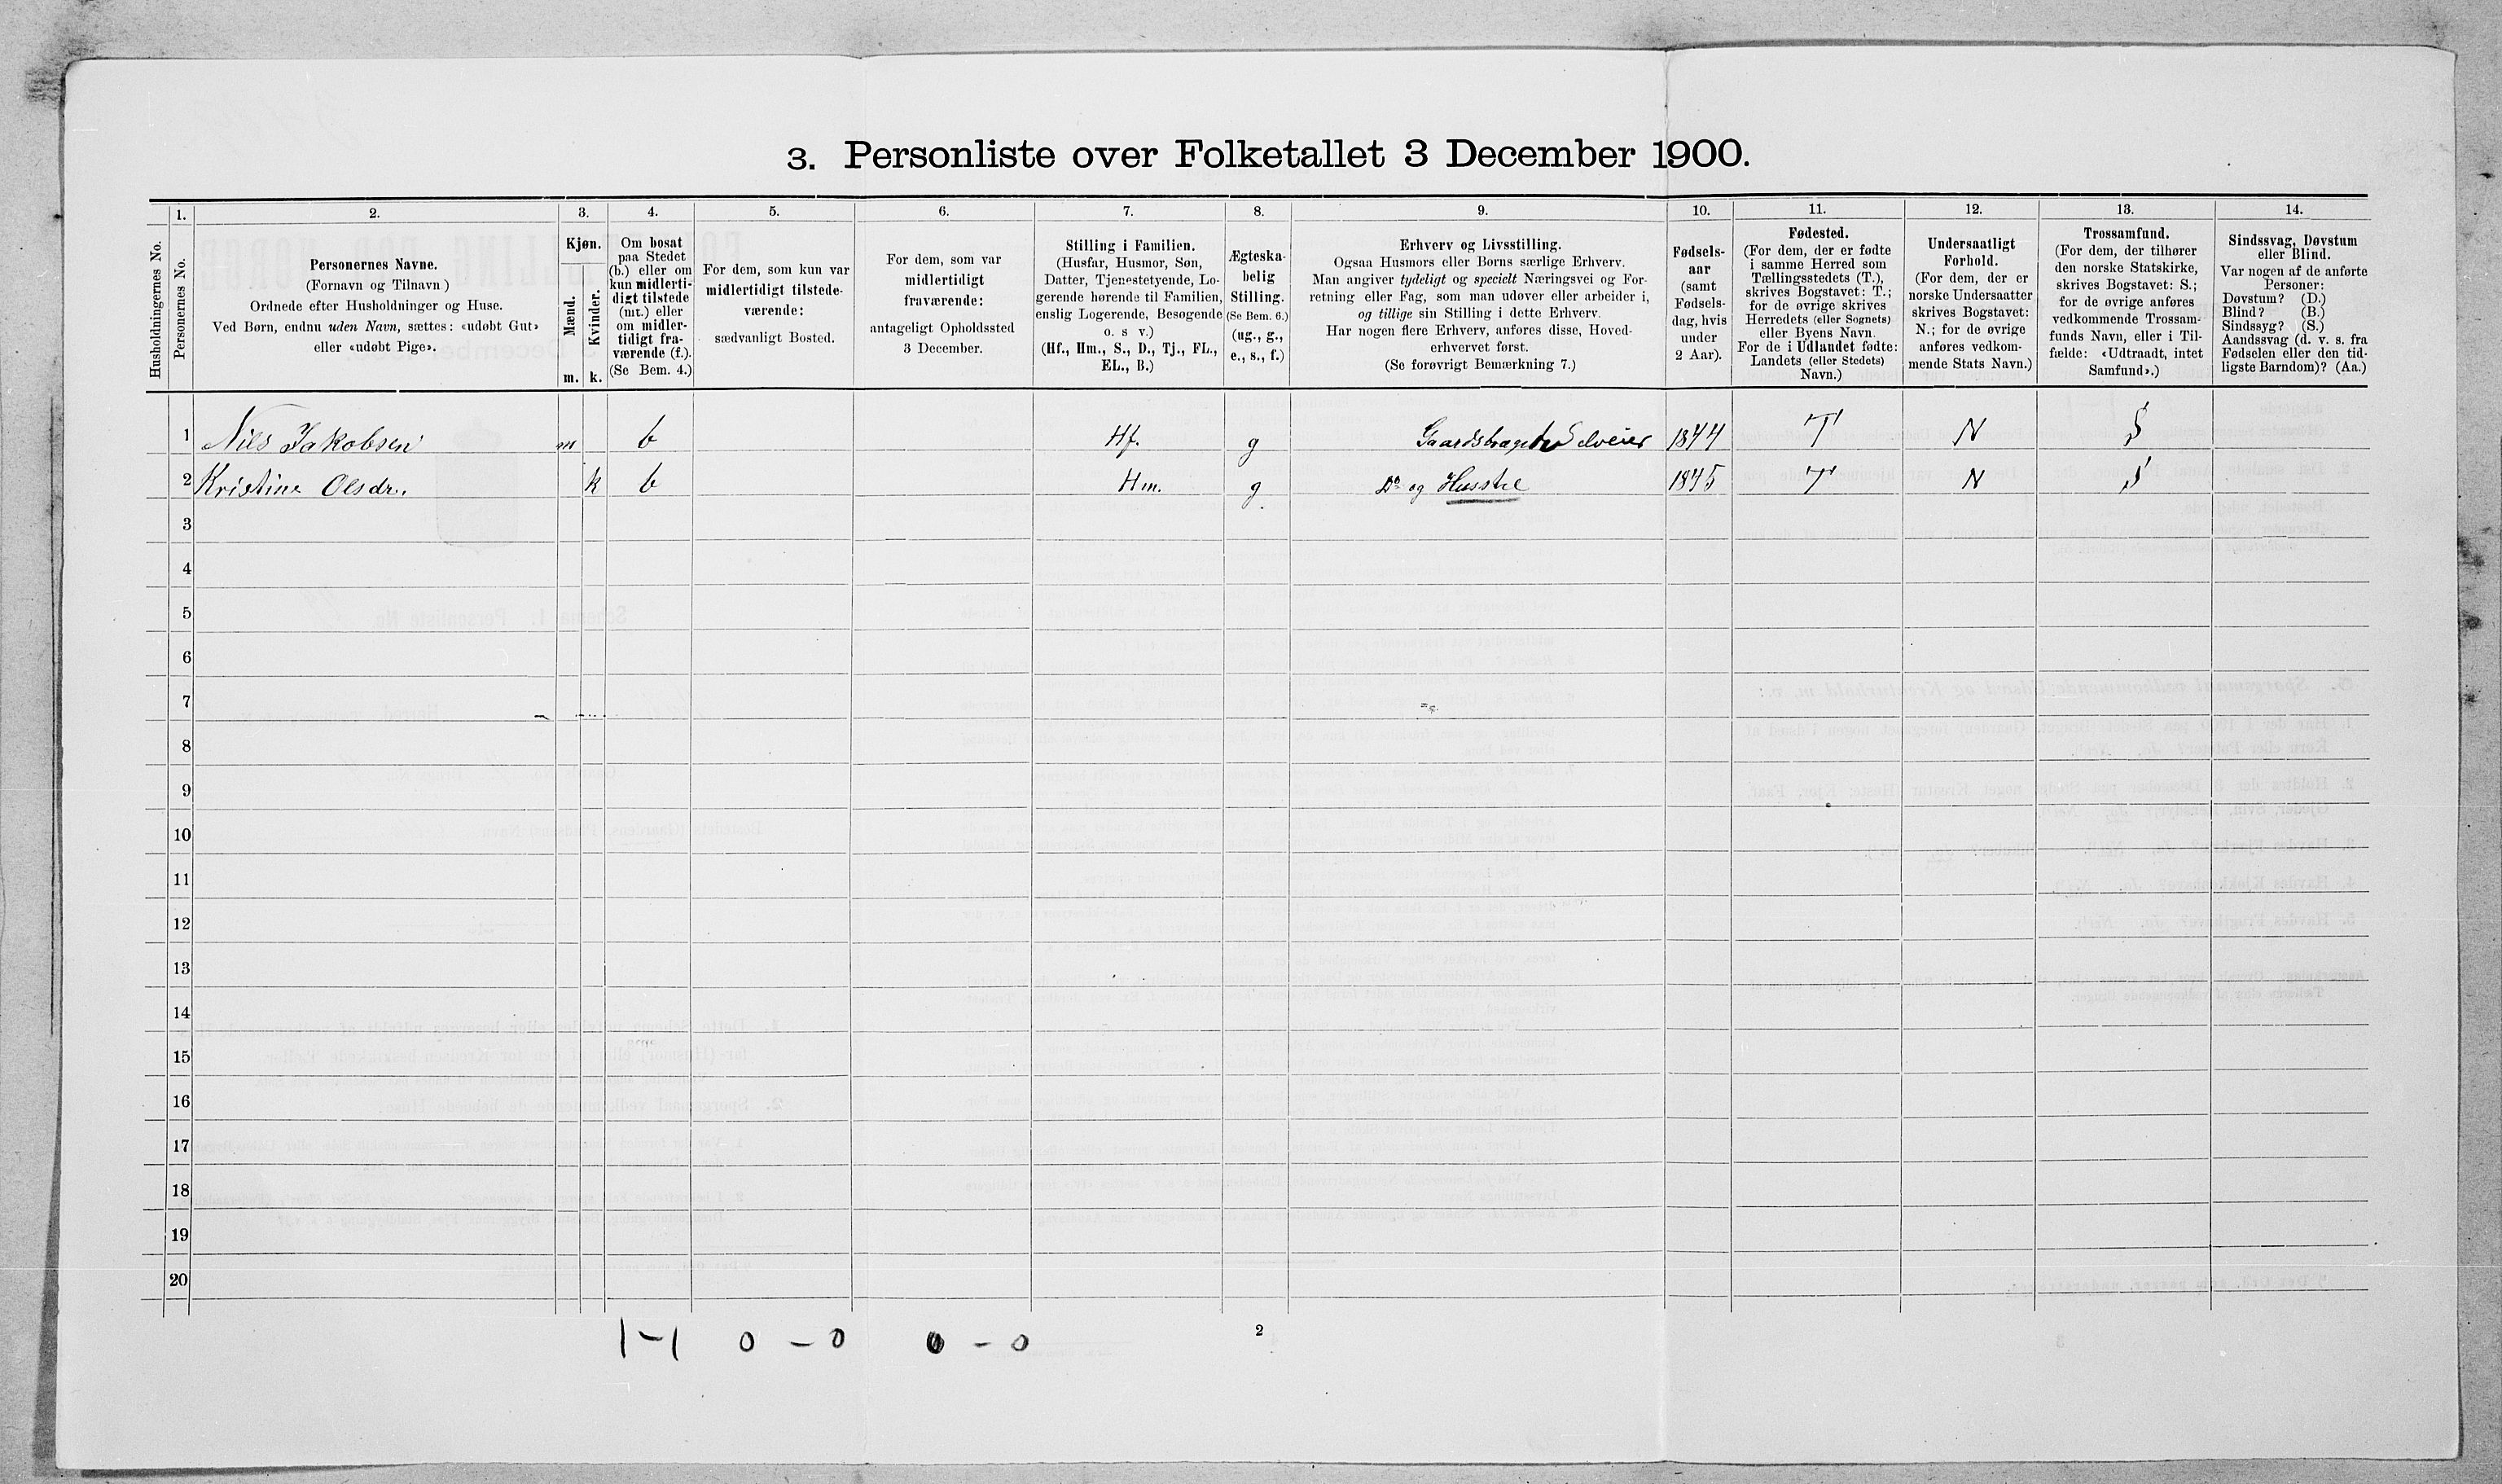 3. Personliste over Folketallet 3 December 1900.
Husholdningernes No.
1.
Personernes No.
2.
Personernes Navne.
(Fornavn og Tilnavn)
Ordnede efter Husholdninger og Huse.
Ved Børn, endnu uden Navn, sættes: «udøbt Gut»
eller «udøbt Pige».
3.
Kjøn.
Mænd.
m.
Kvinder.
k.
4.
Om bosat
paa Stedet
(b.) eller om
kun midlerti-
digt tilstede
(mt.) eller
om midler-
tidigt fra-
værende (f.).
(Se Bem. 4.)
5.
For dem, som kun var
midlertidigt tilstede-
værende:
sædvanligt Bosted.
6.
For dem, som var
midlertidigt
fraværende:
antageligt Opholdssted
3 December.
7.
Stilling i Familien.
(Husfar, Husmor, Søn,
Datter, Tjenestetyende, Lo-
gerende hørende til Familien,
enslig Logerende, Besøgende
o. s v.)
(Hf., Hm., S., D., Tj., FL.,
EL., B.)
8.
Ægteska-
belig
Stilling.
(Se Bem. 6.)
(ug., g.,
e., s., f.)
9.
Erhverv og Livsstilling.
Ogsaa Husmors eller Børns særlige Erhverv.
Man angiver tydeligt og specielt Næringsvei og For-
retning eller Fag, som man udøver eller arbeider i,
og tillige sin Stilling i dette Erhverv.
Har nogen flere Erhverv, anføres disse, Hoved-
erhvervet først.
(Se forøvrigt Bemærkning 7.)
10.
Fødsels-
aar
(samt
Fødsels-
dag, hvis
under
2 Aar).
11.
Fødested.
(For dem, der er fødte
i samme Herred som
Tællingsstedets (T.),
skrives Bogstavet: T.;
for de øvrige skrives
Herredets (eller Sognets)
eller Byens Navn.
For de i Udlandet fødte:
Landets (eller Stedets)
Navn.)
12.
Undersaatligt
Forhold.
(For dem, der er
norske Undersaatter
skrives Bogstavet:
N.; for de øvrige
anføres vedkom-
mende Stats Navn.)
13.
Trossamfund.
(For dem, der tilhører
den norske Statskirke,
skrives Bogstavet: S.;
for de øvrige anføres
vedkommende Trossam-
funds Navn, eller i Til-
fælde: «Udtraadt, intet
Samfund».)
14.
Sindssvag, Døvstum
eller Blind.
Var nogen af de anførte
Personer:
Døvstum? (D.)
Blind? (B.)
Sindssyg? (S.)
Aandssvag (d. v. s. fra
Fødselen eller den tid-
ligste Barndom)? (Aa.)
1 Nils Jakobsen m b Hf. g Gaardbruger Selveier 1844 T N S
2 Kristine Olsdr. k b Hm. g. Do og Husstel 1845 T N S
3
4
5
6
7
8
9
10
11
12
13
14
15
16
17
18
19
20
1-1 0-0 0-0
2